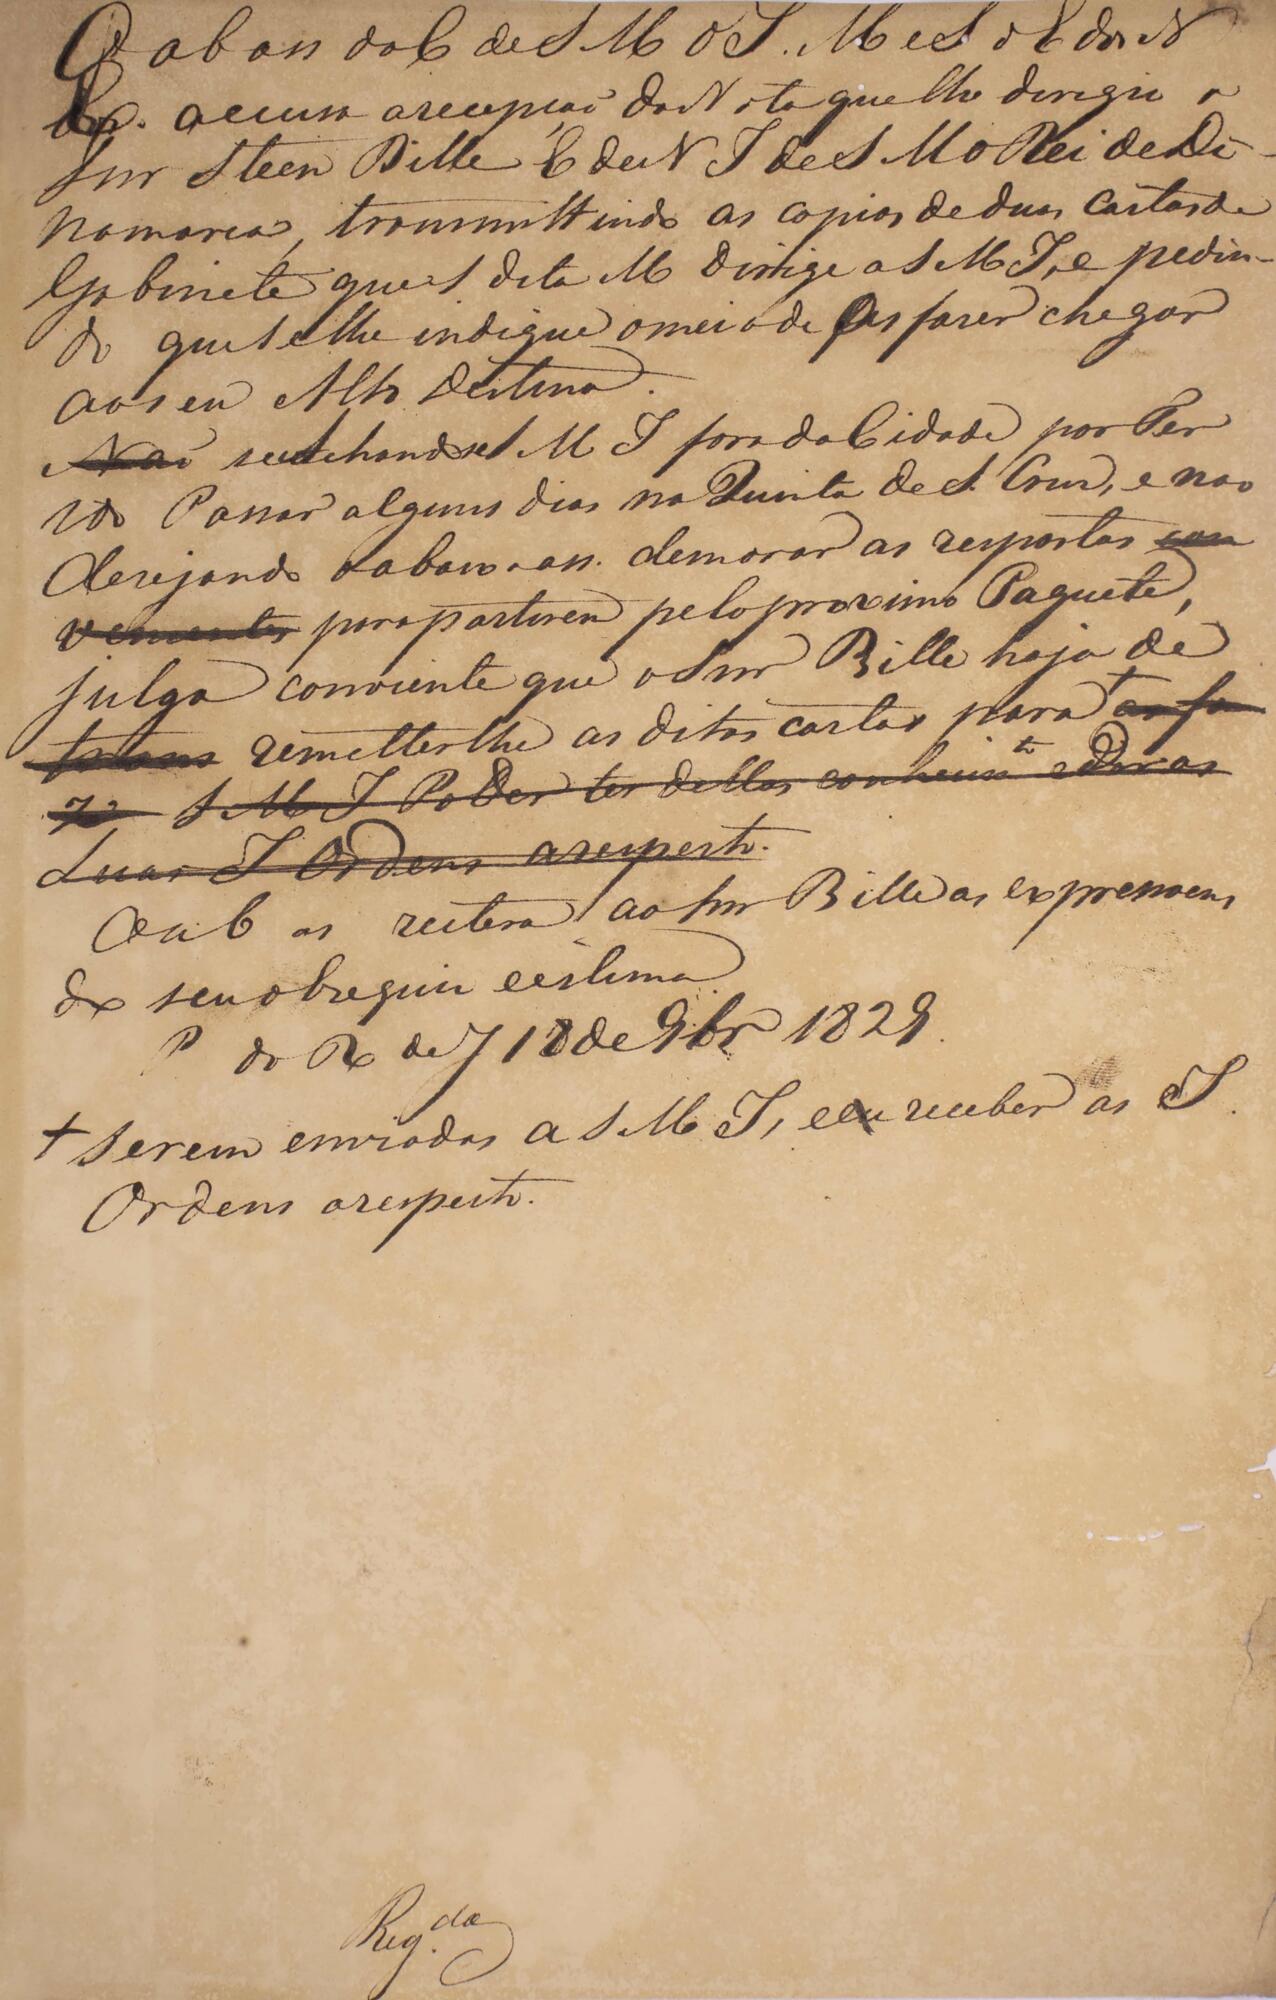 O abaix ass do C de S M O I. M e S d E dos N
Ex. accusa a recepçaõ da Nota que lhe dirigiu o
Snr Steen Bille E de N I de S M o Rei de Di-
namarca, transmittindo as copias de duas cartas de
Gabinete que S dita M dirige a S M I, e pedin-
do que se lhe indique o meio de as fazer chegar
ao seu Alto destino.
Naõ se achando S M I fora da Cidade por Ter
ido Passar alguns dias na Quinta de S. Cruz, e nao
Desejando o abaixo ass. demorar as respostas con
venientes para partirem pelo proximo Paquete,
julga conveniente que o Snr Bille haja de
remetter lhe as ditas cartas para + as fa
ze S M I Poder ter dellas conhecim.to e Dar as
Suas I Ordens a respeito.
O a b as reitera ao Snr Bille as expressoens
de seu obsequio e estima
P do R de J 18 de 9br 1829.
+ serem enviadas a S M I, e eu receber as I.
Ordens a respeito.
Reg.da